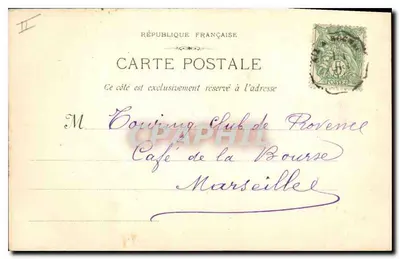 II
RÉPUBLIQUE FRANÇAISE
CARTE POSTALE
Ce côté est exclusivement réservé à l'adresse
M Touring Club de Provence
Café de la Bourse
Marseille
CPAPHIL
5